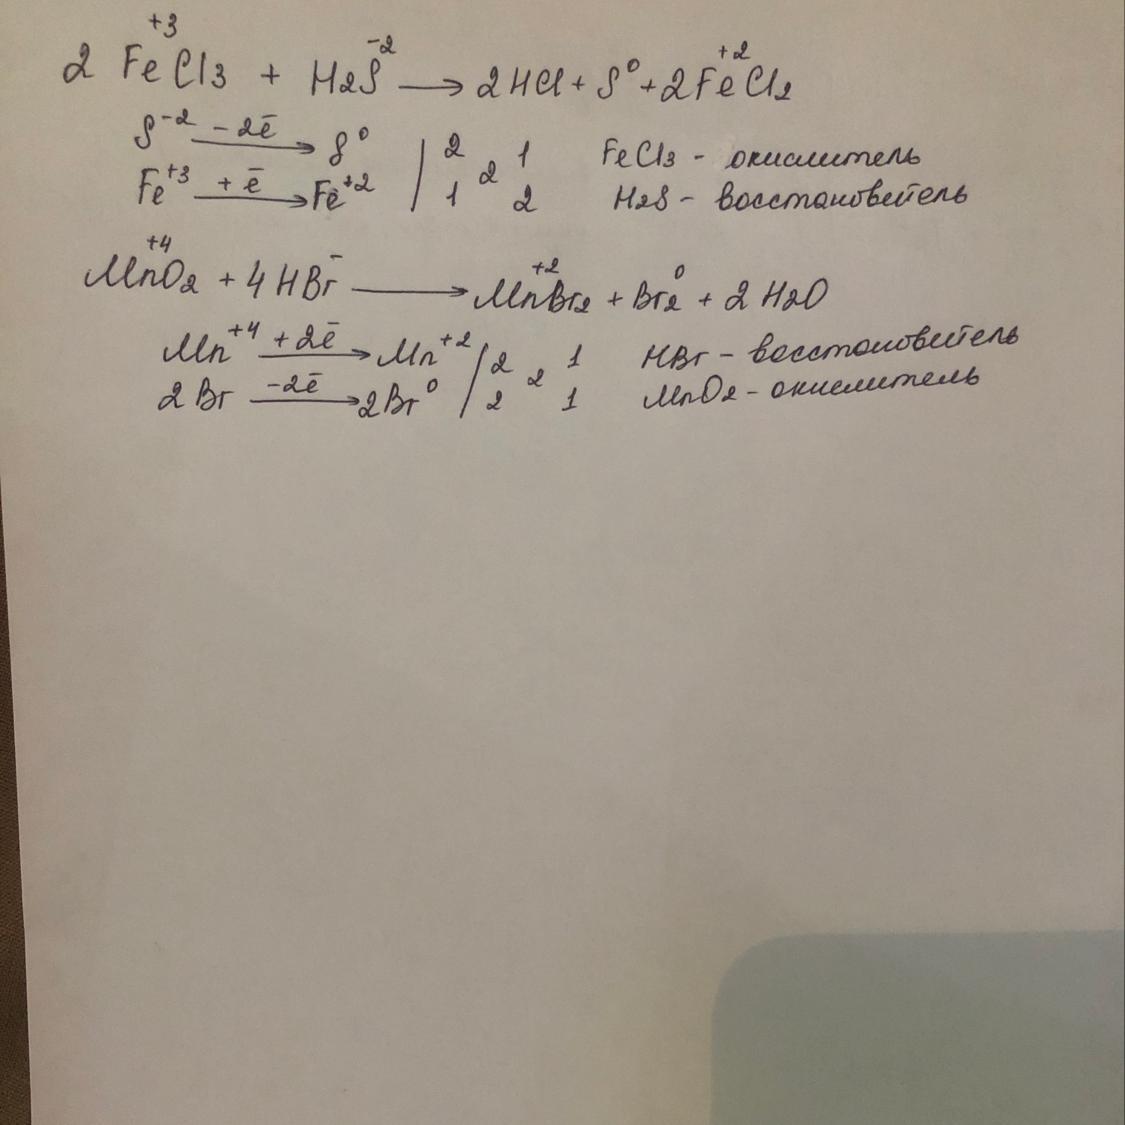 2 Fe⁺³Cl₃ + H₂S⁻² → 2HCl + S⁰ + 2Fe⁺²Cl₂
S⁻² −2ē→ S⁰ | 2 2 1 FeCl₃ - окислитель
Fe⁺³ +ē→ Fe⁺² | 1 2 H₂S - восстановитель
Mn⁺⁴O₂ + 4HBr⁻ → Mn⁺²Br₂ + Br₂⁰ + 2H₂O
Mn⁺⁴ +2ē→ Mn⁺² | 2 2 1 HBr - восстановитель
2Br −2ē→ 2Br⁰ | 2 1 MnO₂ - окислитель